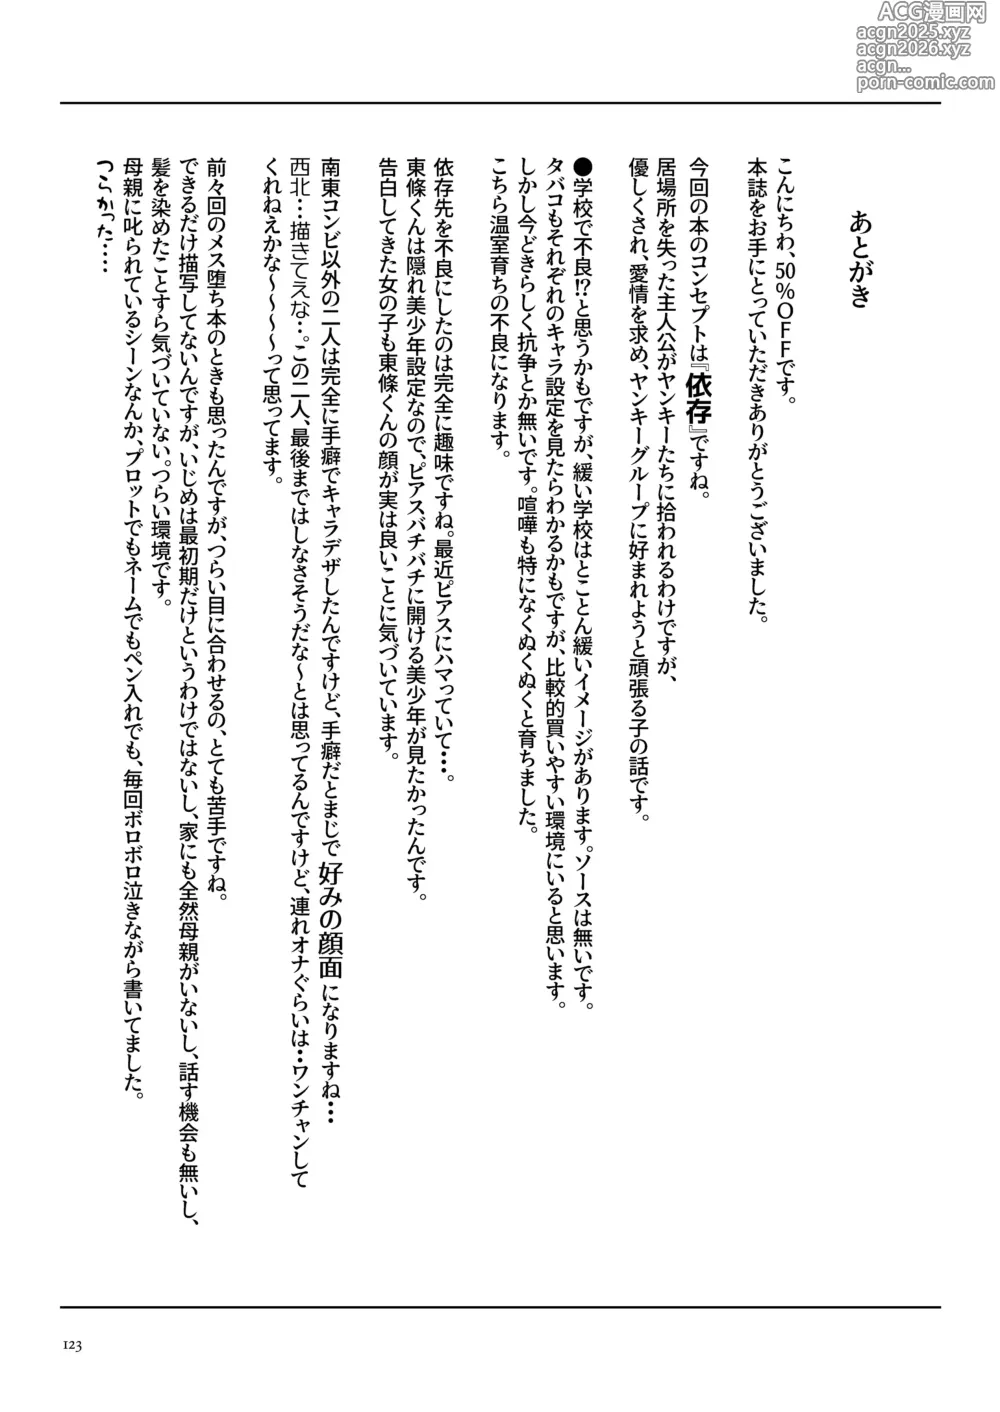 ACG漫画网
acgn2025.xyz
acgn2026.xyz
acgn...
porn-comic.com
あとがき
こんにちわ、50%OFFです。
本誌をお手にとっていただきありがとうございました。
今回の本のコンセプトは『依存』ですね。
居場所を失った主人公がヤンキーたちに拾われるわけですが、
優しくされ、愛情を求め、ヤンキーグループに好まれようと頑張る子の話です。
●学校で不良!?と思うかもですが、緩い学校はとことん緩いイメージがあります。ソースは無いです。
タバコもそれぞれのキャラ設定を見たらわかるかもですが、比較的買いやすい環境にいると思います。
しかし今どきらしく抗争とか無いです。喧嘩も特になくぬくぬくと育ちました。
こちら温室育ちの不良になります。
依存先を不良にしたのは完全に趣味ですね。最近ピアスにハマっていて…。
東條くんは隠れ美少年設定なので、ピアスバチバチに開ける美少年が見たかったんです。
告白してきた女の子も東條くんの顔が実は良いことに気づいています。
南東コンビ以外の二人は完全に手癖でキャラデザしたんですけど、手癖だとまじで好みの顔面になりますね…
西北…描きてえな…。この二人、最後まではしなさそうだな〜とは思ってるんですけど、連れオナぐらいは…ワンチャンして
くれねえかな〜〜〜〜って思ってます。
前々回のメス堕ち本のときも思ったんですが、つらい目に合わせるの、とても苦手ですね。
できるだけ描写してないんですが、いじめは最初期だけというわけではないし、家にも全然母親がいないし、話す機会も無いし、
髪を染めたことすら気づいていない。つらい環境です。
母親に叱られているシーンなんか、プロットでもネームでもペン入れでも、毎回ボロボロ泣きながら書いてました。
つらかった……
123